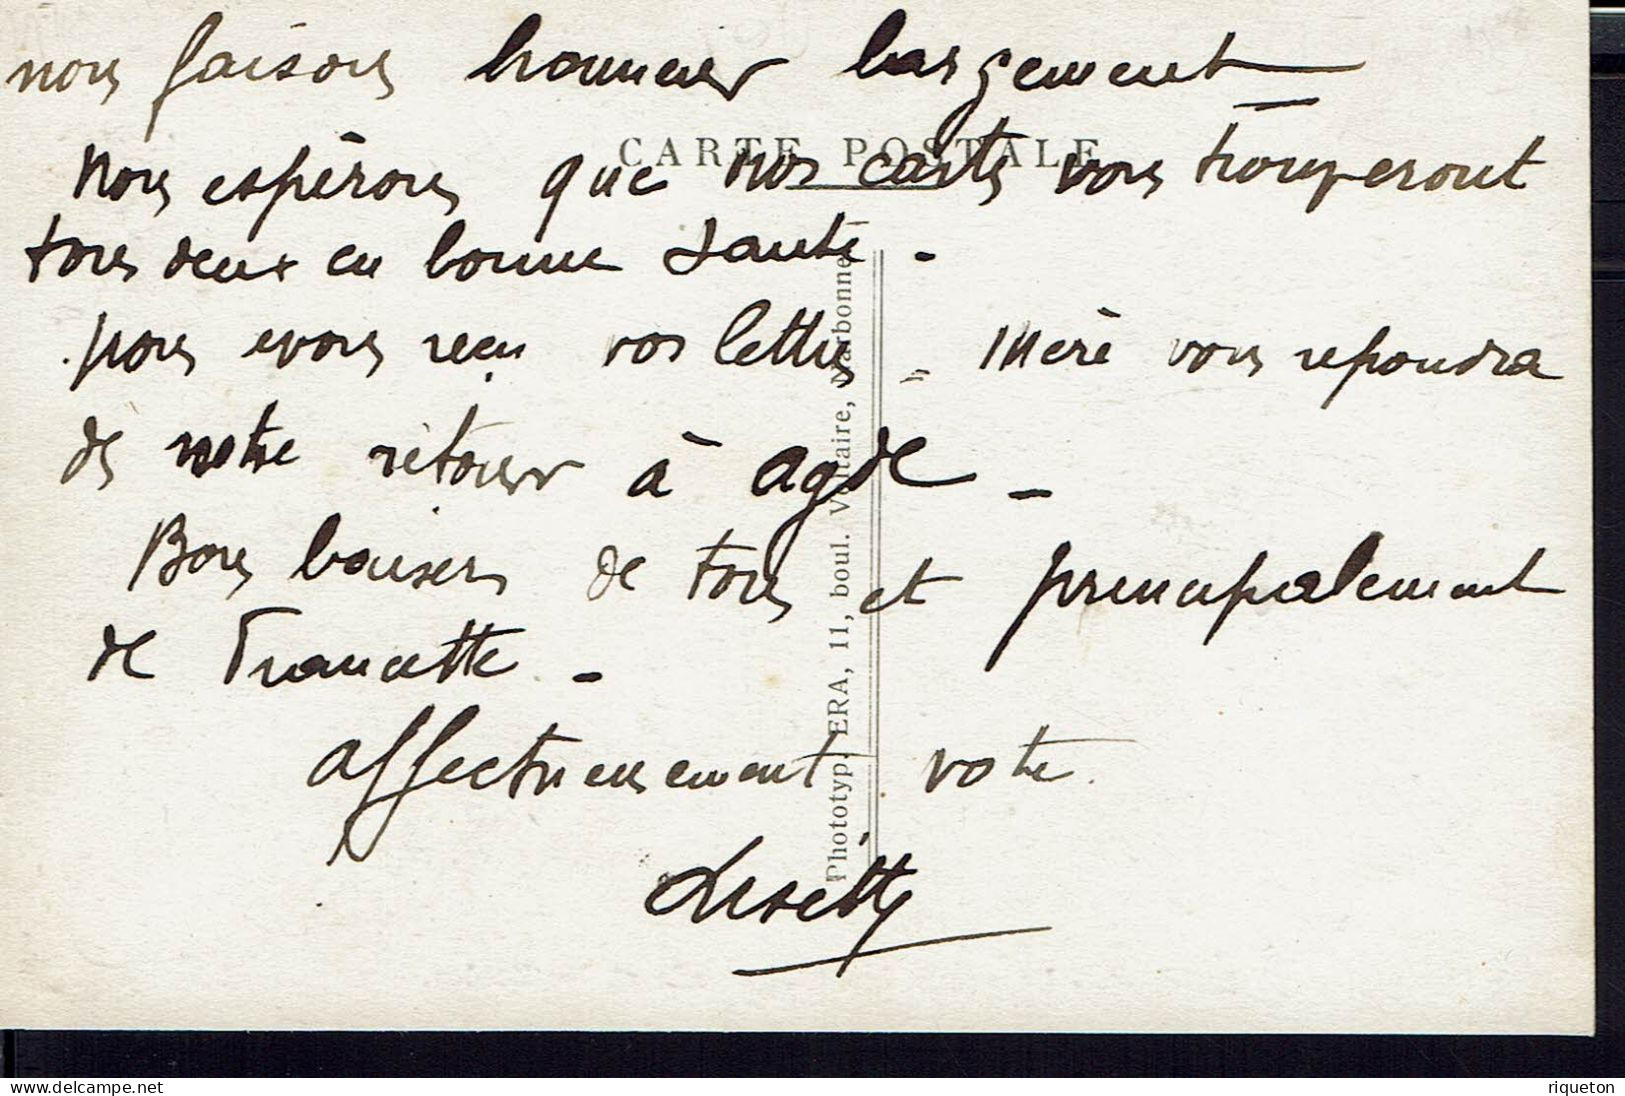 nous faisons honneur largement
CARTE POSTALE
Nous espérons que nos cartes vous trouveront
tous deux en bonne santé -
Nous avons reçu vos lettres - Mère vous repondra
de notre retour à Agde -
Bons baisers de tous et principalement
de Francette -
Affectueusement votre
Lisette
Phototyp. ERA, 11, boul. Voltaire, Narbonne
www.delcampe.net
riqueton